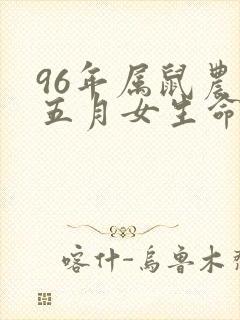 96年属鼠農
五月女生命
喀什-烏魯木齊